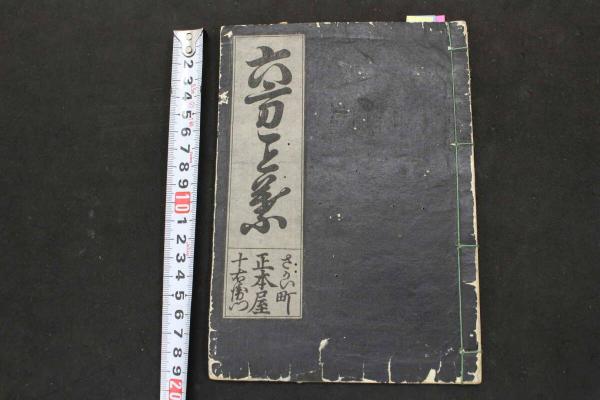 六方こと葉
さかい町
正本屋
十右衛門
0 2 3 4 5 6 7 8 9 10 1 2 3 4 5 6 7 8 9 20